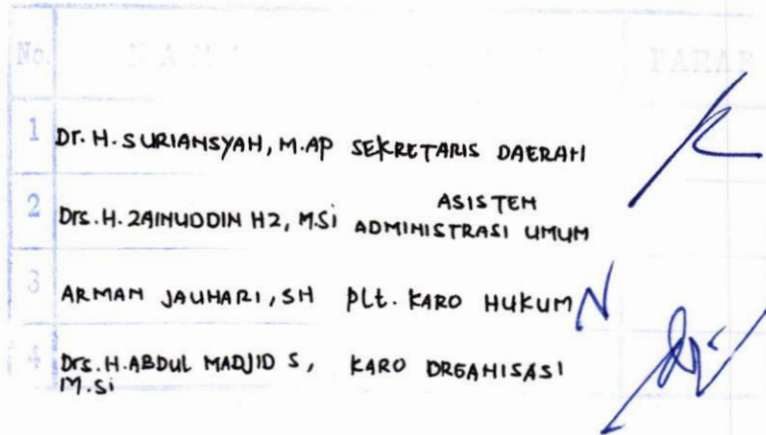 No. NAMA PARAF
1 Dr. H. SURIANSYAH, M.AP SEKRETARIS DAERAH
2 Drs. H. ZAINUDDIN HZ, M.Si ASISTEN ADMINISTRASI UMUM
3 ARMAN JAUHARI, SH Plt. KARO HUKUM
4 Drs. H. ABDUL MADJID S, M.Si KARO ORGANISASI